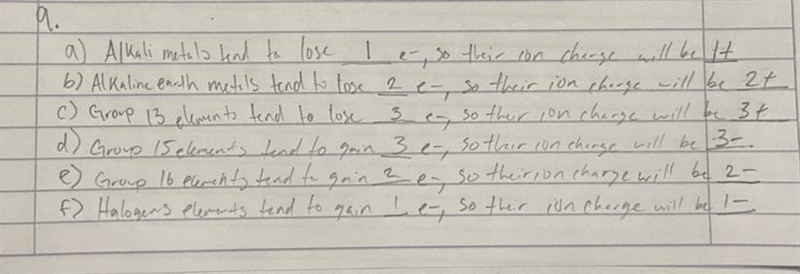 9.
a) Alkali metals tend to lose 1 e-, so their ion charge will be 1+
b) Alkaline earth metals tend to lose 2 e-, so their ion charge will be 2+
c) Group 13 elements tend to lose 3 e-, so their ion charge will be 3+
d) Group 15 elements tend to gain 3 e-, so their ion charge will be 3-.
e) Group 16 elements tend to gain 2 e-, so their ion charge will be 2-
f) Halogens elements tend to gain 1 e-, so their ion charge will be 1-